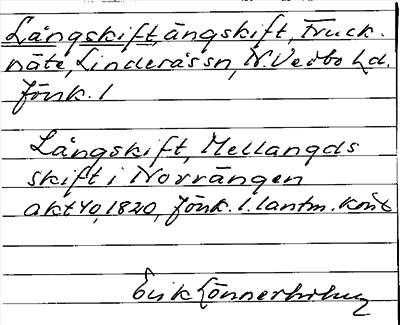 Långskift, ängskift, Fruck-
näte, Linderås sn, N. Vedbo hd.
Jönk. l
Långskift, Mellangds
skift i Norrängen
akt 40, 1820, Jönk. l. lantm. kont
Erik Lönnerholm